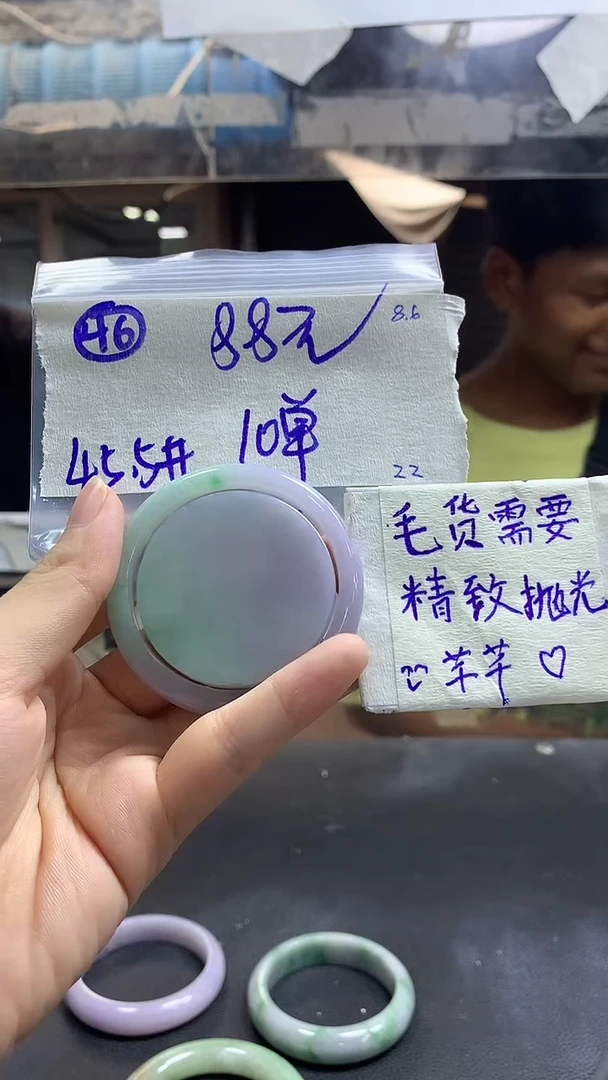 46 88元 8.6
45.5井 10单 22
毛货需要
精致抛光
芊芊 ♡